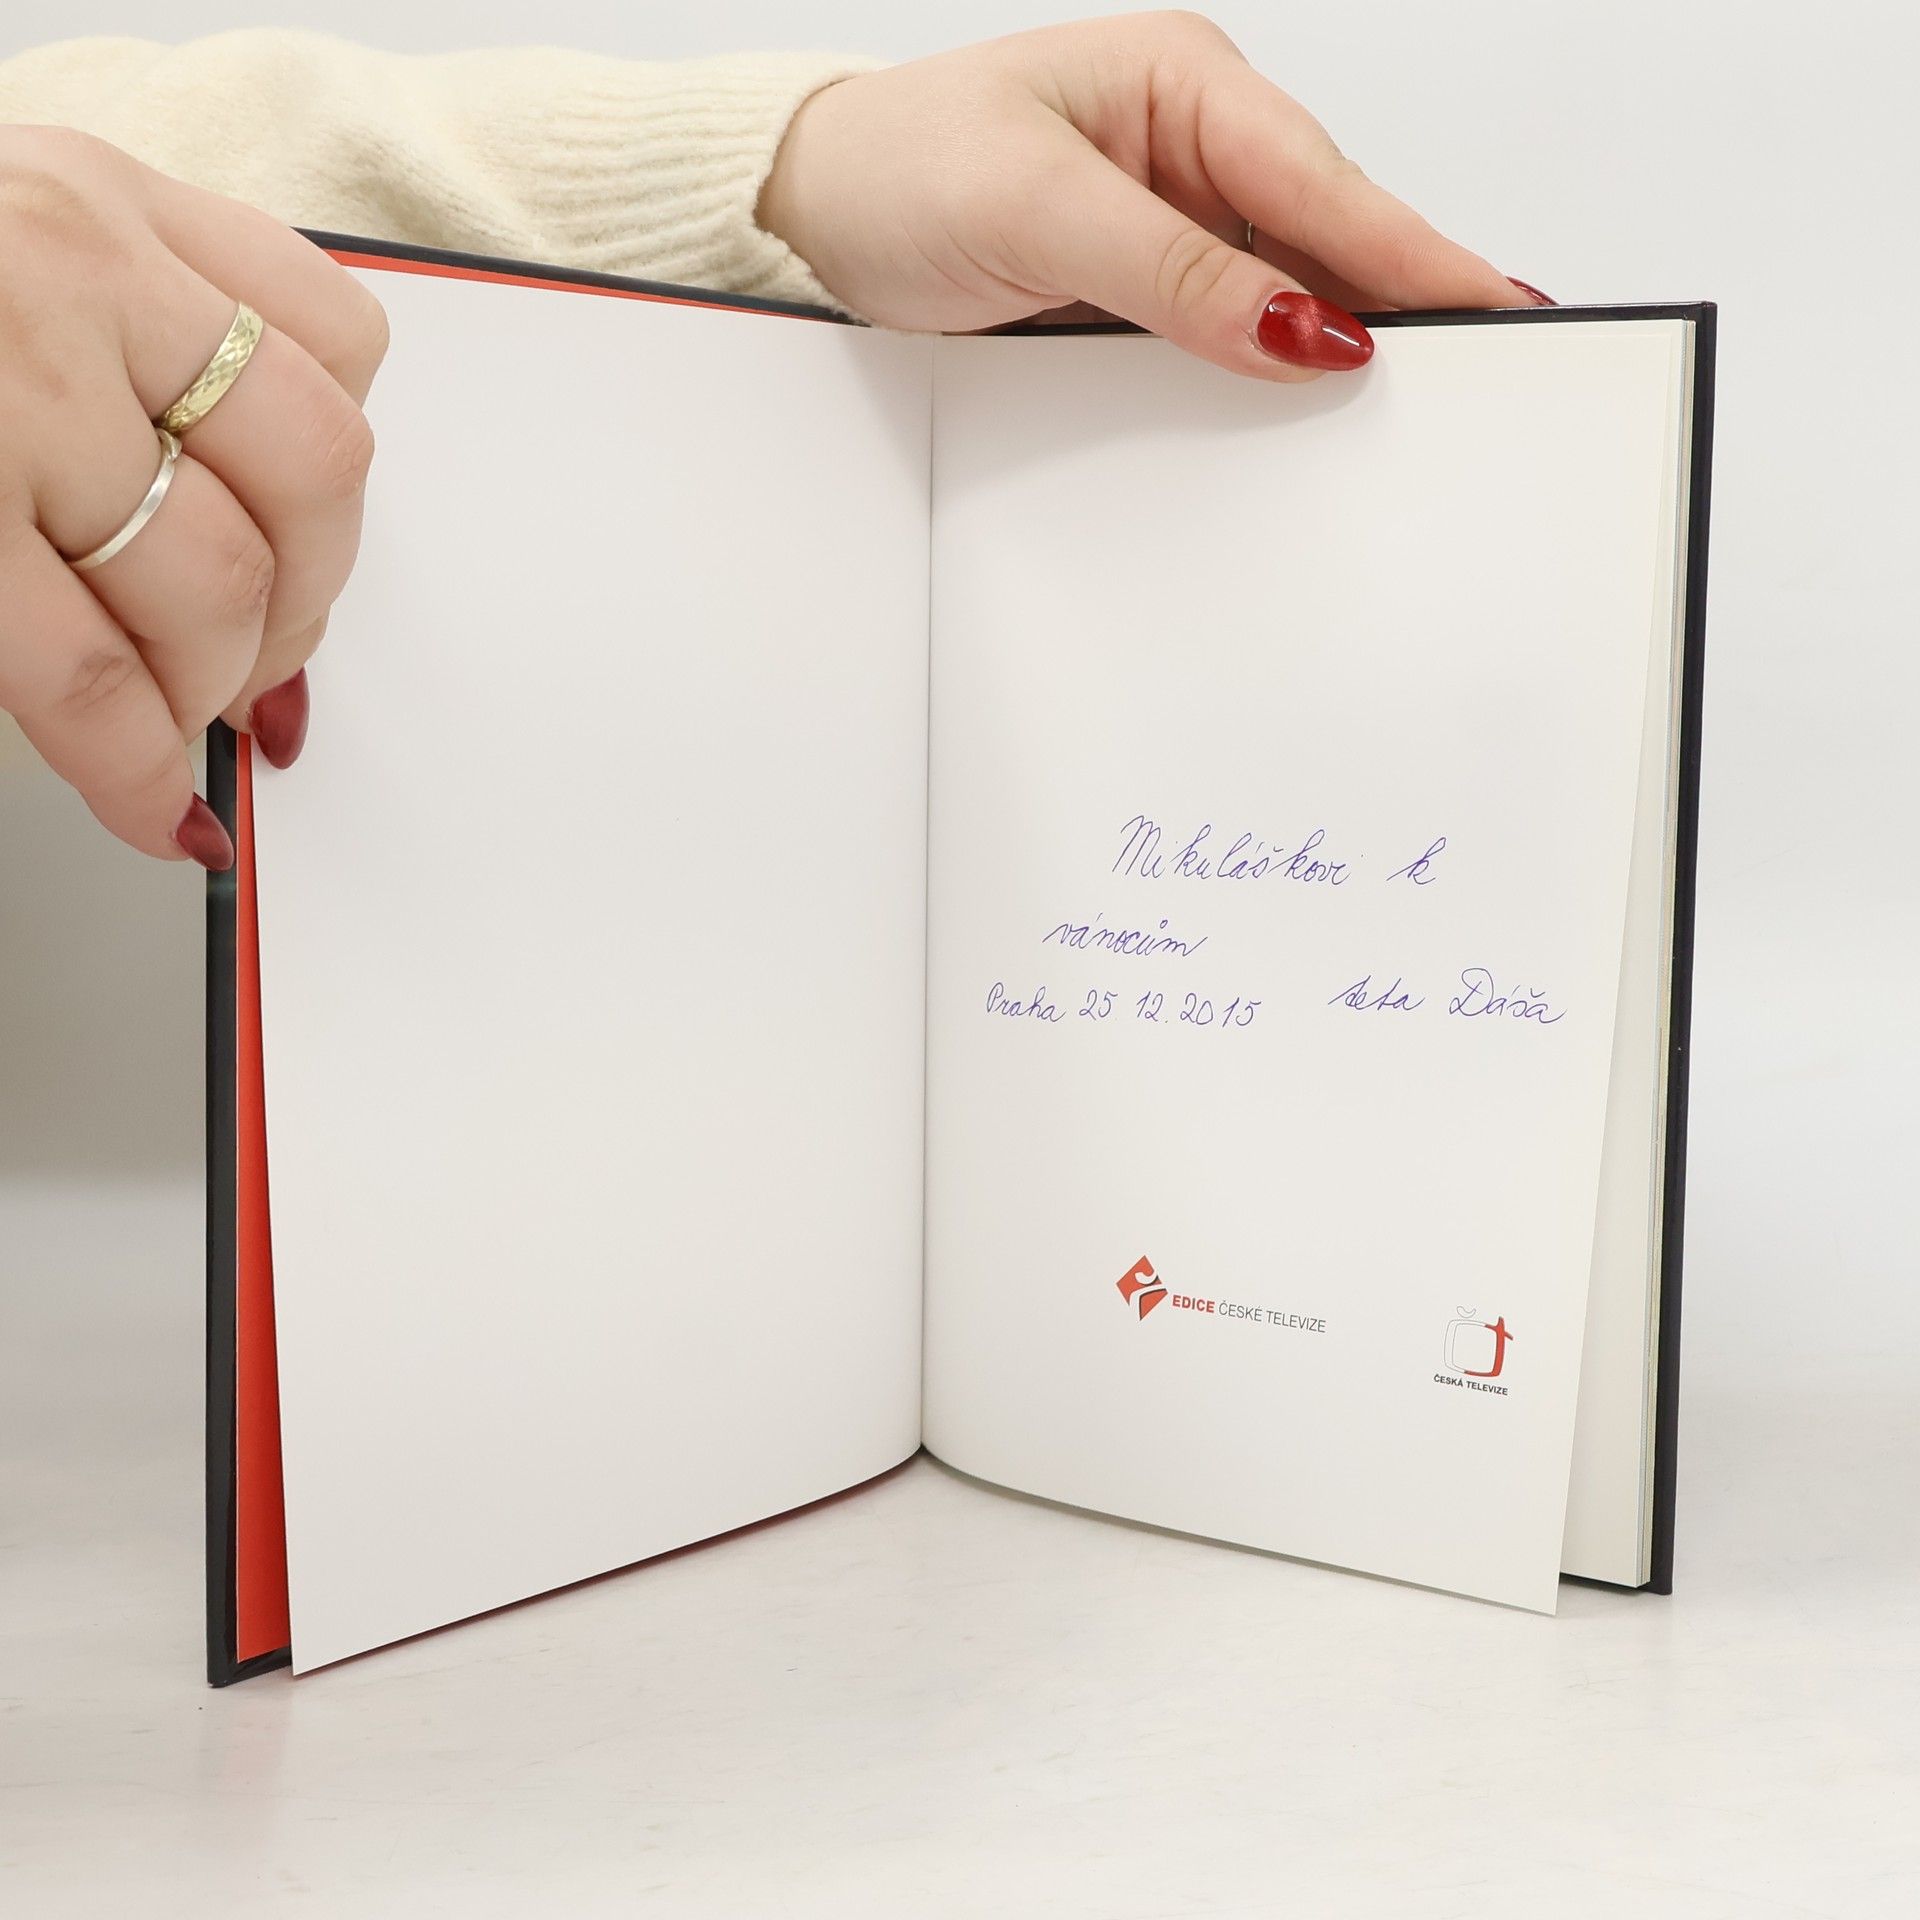 Mikuláškovi k
vánocům
Praha 25. 12. 2015 teta Dáša
EDICE ČESKÉ TELEVIZE
ČESKÁ TELEVIZE